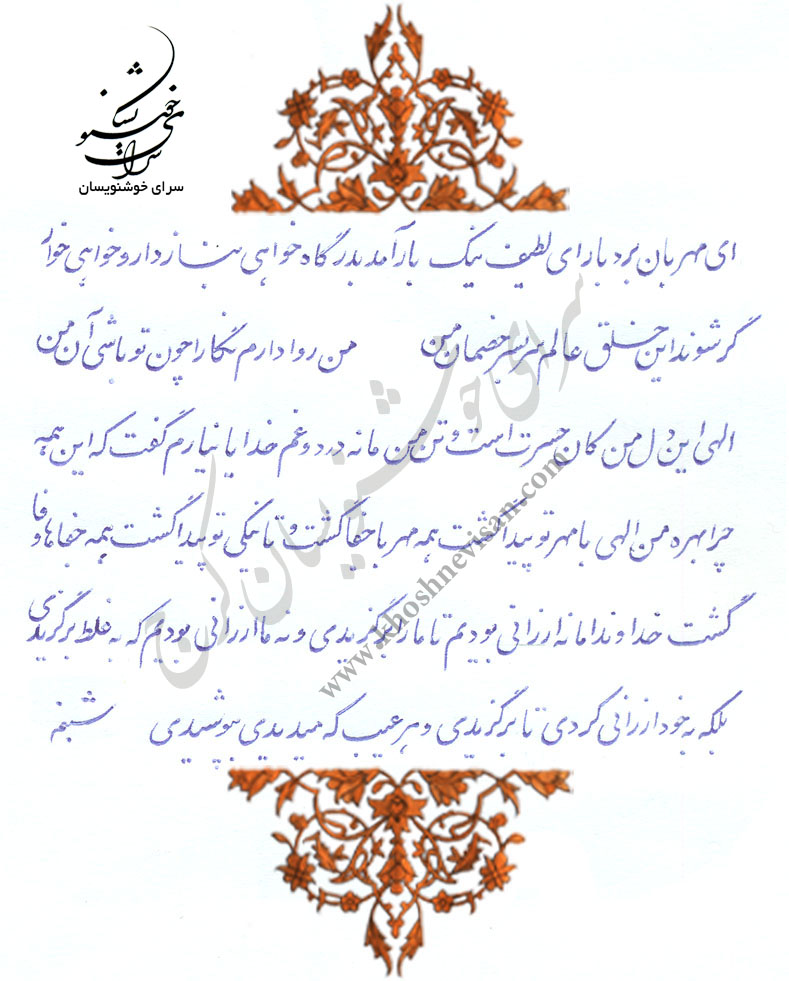 سرای خوشنویسان
سرای خوشنویسان
ای مهربان بردبار ای لطیف نیک یار آمد بدرگاه خواهی بناز دار و خواهی خوار
گر شوند این خلق عالم سر بسر خصمان من من روا دارم نگارا چون تو باشی آن من
الهی این دل من کان حسرت است و تن من مایه درد و غم خدایا نیارم گفت که این همه
چرا بهره من الهی با مهر تو پیدا گشت همه مهر با جفا گشت و تا نیکی تو پیدا گشت همه جفاها وفا
گشت خداوندا ما نه ارزانی بودیم تا ما را برگزیدی و نه نا ارزانی بودیم که به غلط برگزیدی
بلکه به خود ارزانی کردی تا برگزیدی و هر عیب که میدیدی بپوشیدی شبنم
سرای خوشنویسان کرج
www.khoshnevisan.com